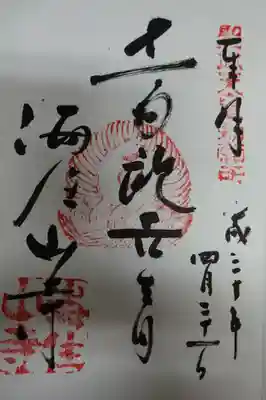 奉拝
平成二十年
四月二十一日
十一面観世音
海住山寺